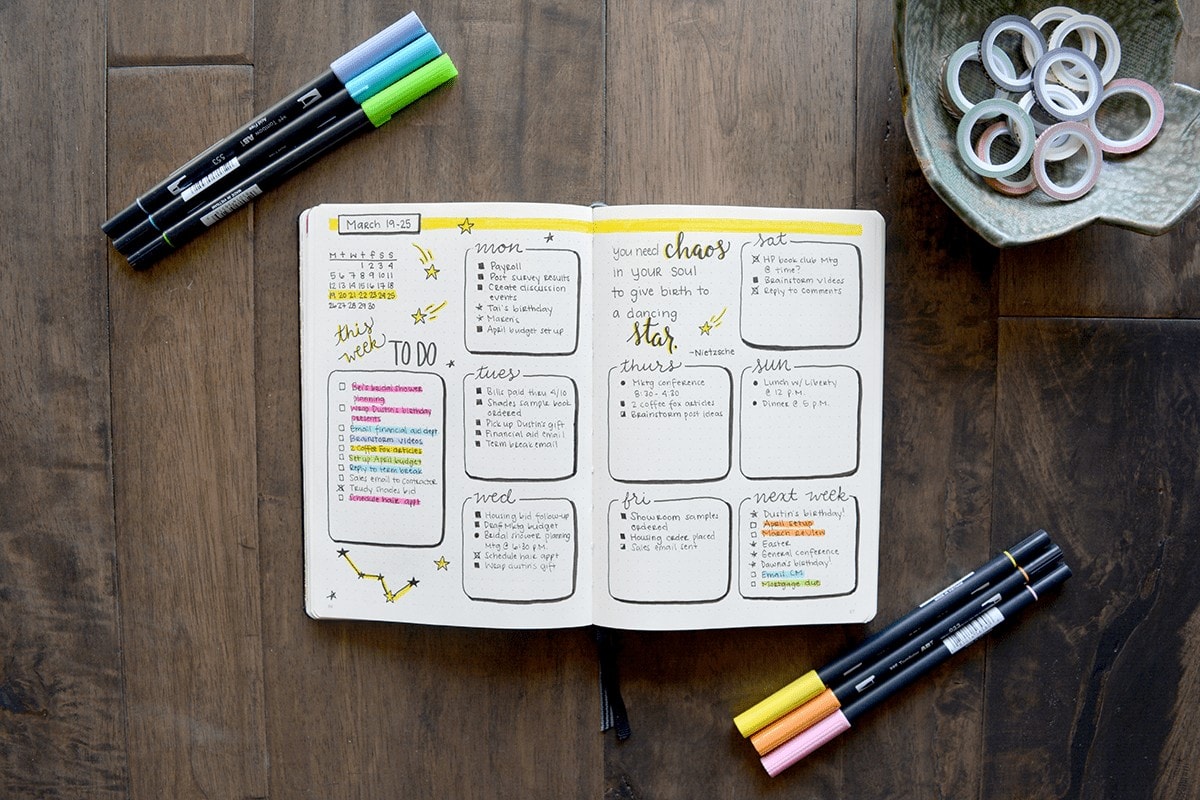 March 19-25
M t W t f S S
1 2 3 4
5 6 7 8 9 10 11
12 13 14 15 16 17 18
19 20 21 22 23 24 25
26 27 28 29 30
this
week TO DO
Bel's bridal shower
planning
Wrap Dustin's birthday
presents
Email financial aid dept
Brainstorm videos
2 Coffee Fox articles
Set up April budget
Reply to term break
Sales email to contractor
Trudy Shades bid
Schedule hair appt
mon
Payroll
Post survey results
Create discussion
events
Tai's birthday
Maren's
April budget set up
tues
Bills paid thru 4/10
Shades sample book
ordered
Pick up Dustin's gift
Financial aid email
Term break email
wed
Housing bid follow-up
Draft Mktg budget
Bridal shower planning
Mtg @ 6:30 P.M.
Schedule hair appt
Wrap Dustin's gift
you need chaos
in your soul
to give birth to
a dancing
star.
~Nietzsche
thurs
Mktg conference
8:30 - 4:30
2 coffee fox articles
Brainstorm post ideas
fri
Showroom samples
ordered
Housing order placed
Sales email sent
sat
HP book club Mtg
@ time?
Brainstorm videos
Reply to comments
sun
Lunch w/ Liberty
@ 12 P.M.
Dinner @ 5 P.M.
next week
Dustin's birthday!
April setup
March review
Easter
General conference
Dawna's birthday!
Email CM
Mortgage due
Tombow ABT
553